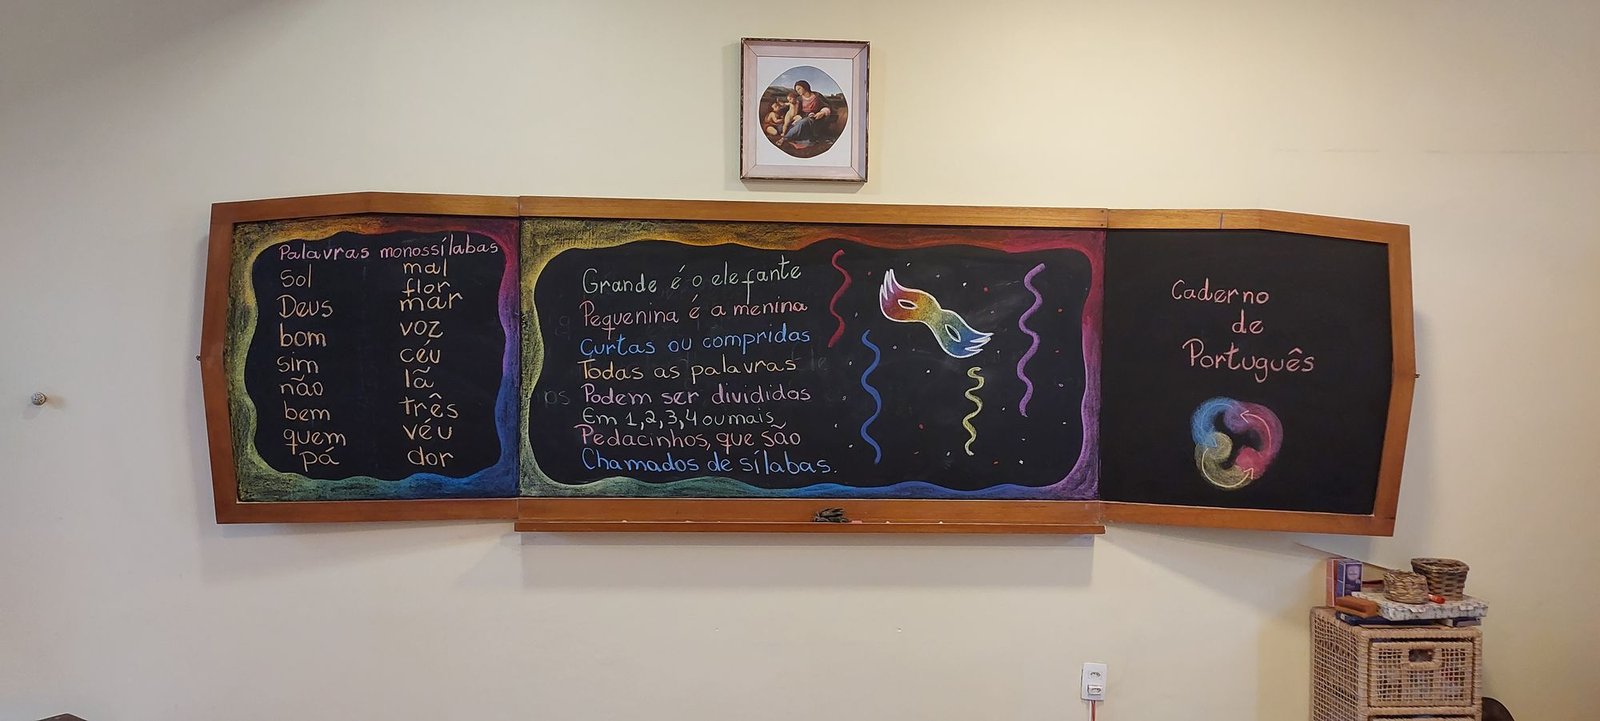 Palavras monossílabas
Sol
Deus
bom
sim
não
bem
quem
pá
mal
flor
mar
voz
céu
lã
três
véu
dor
Grande é o elefante
Pequenina é a menina
Curtas ou compridas
Todas as palavras
Podem ser divididas
Em 1,2,3,4 ou mais
Pedacinhos, que são
Chamados de sílabas.
Caderno
de
Português